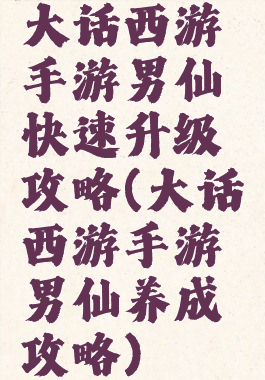 大话西游
手游男仙
快速升级
攻略(大话
西游手游
男仙养成
攻略)